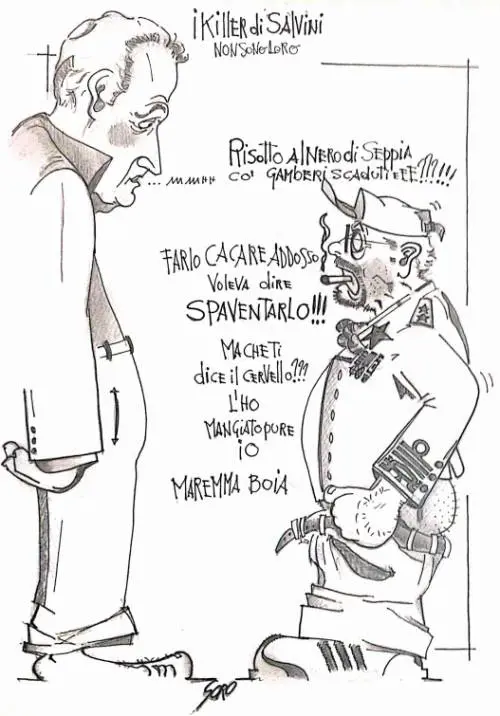 i KillER di SALViNi
NON SONO LORO
... MMMHH
RiSOTTO Al NERO di SEPPiA
CO' GAMBERi SCADUTi EEE???!!!!
FARlO CACARE ADDOSSO
VOlEVA diRE
SPAVENTARLO!!!
MA CHE Ti
diCE il CERVEllO???
L'HO
MANGiATO PURE
iO
MAREMMA BOiA
SORO